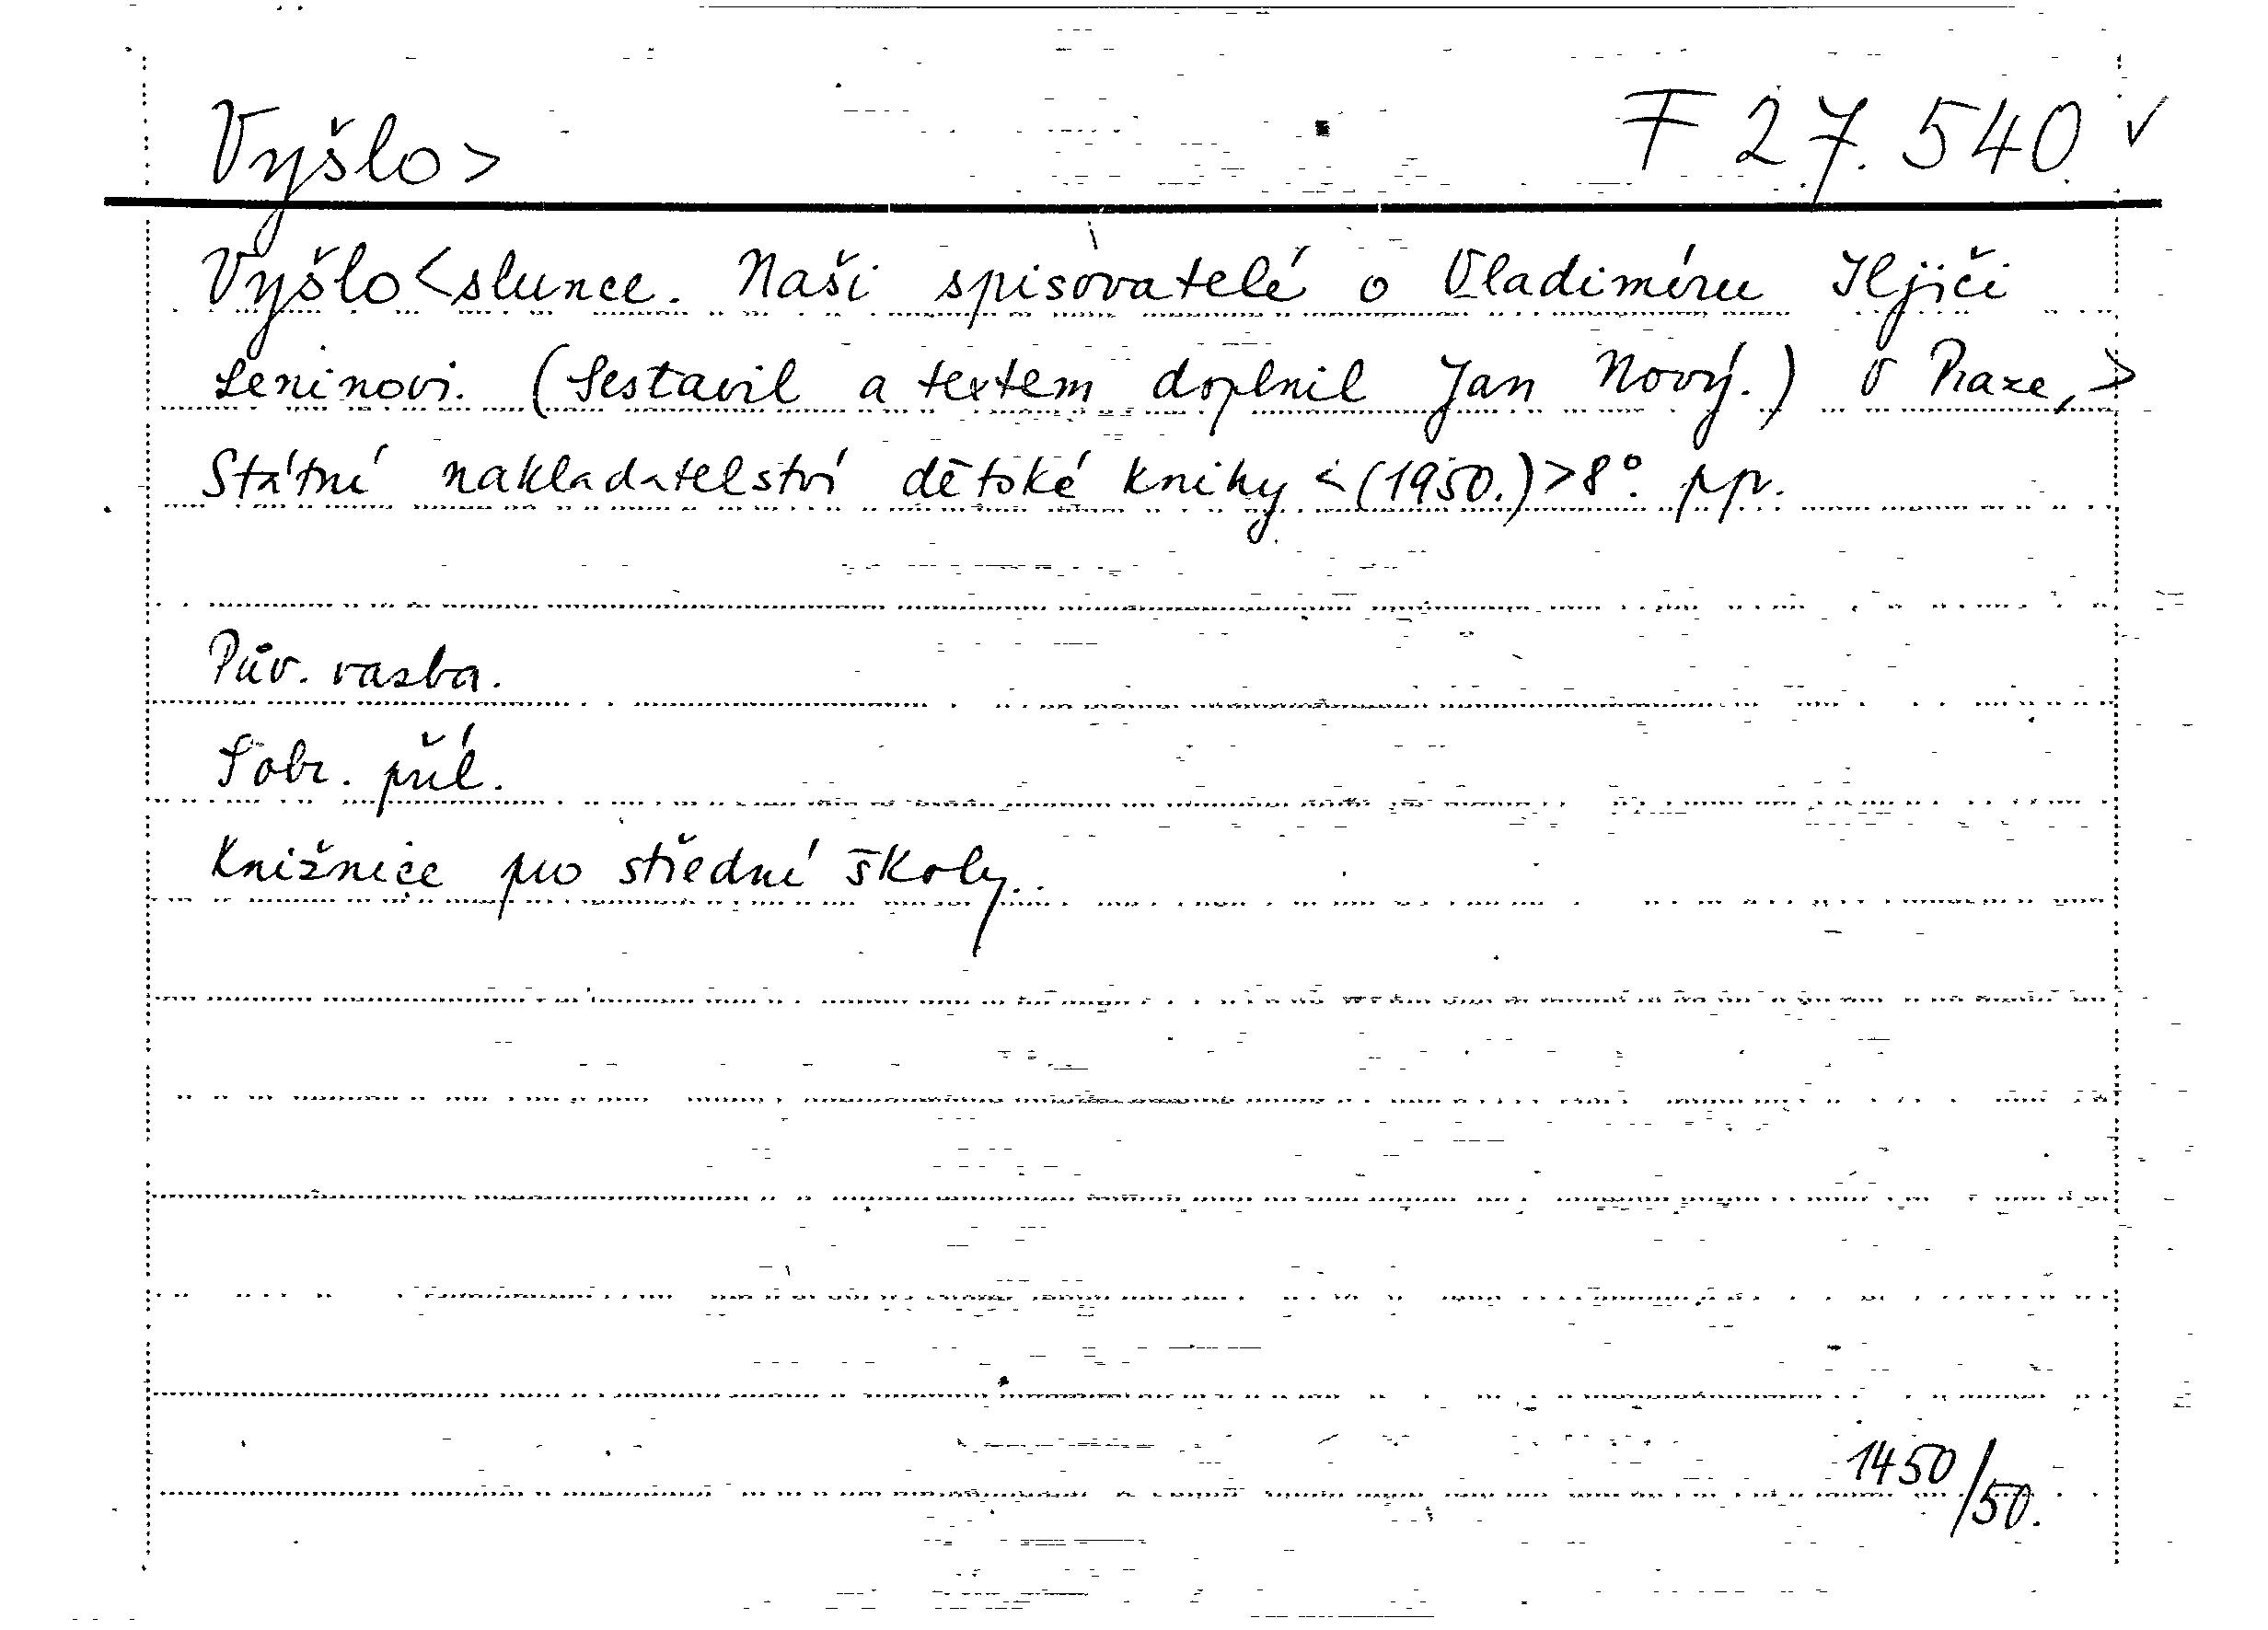 Vyšlo> F 27.540. ✓
Vyšlo<slunce. Naši spisovatelé o Vladimíru Iljiči
Leninovi. (Sestavil a textem doplnil Jan Nový.) V Praze,>
Státní nakladatelství dětské knihy <(1950.)>8°. pp.
Pův. vazba.
S obr. příl.
Knižnice pro střední školy.
1450/50.